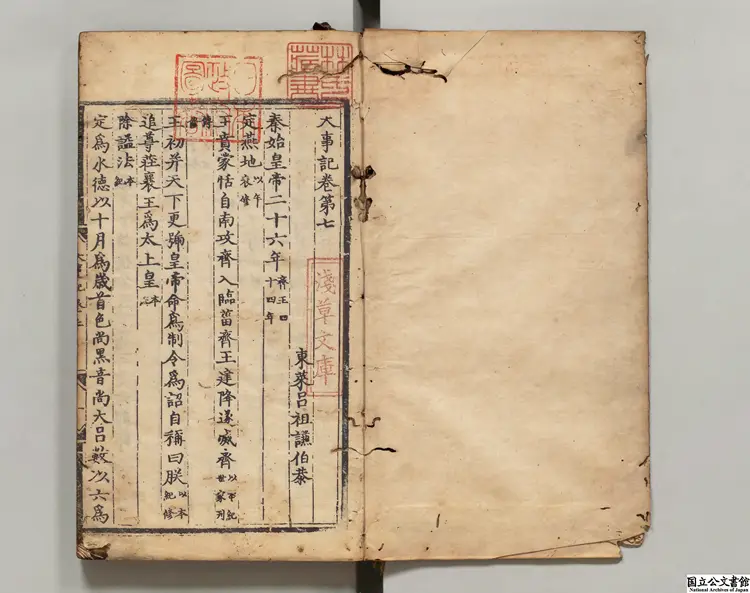 大事記卷第七
東萊呂祖謙伯恭
秦始皇帝二十六年
齊王
十四年
定燕地
以年
表修
王賁蒙恬自南攻齊入臨菑齊王建降遂滅齊
以本紀
世家列
傳修
王初并天下更號皇帝命爲制令爲詔自稱曰朕
以本
紀修
追尊莊襄王爲太上皇
本
除諡法
本
紀
定爲水德以十月爲歲首色尚黑音尚大呂數以六爲
淺草文庫
国立公文書館
National Archives of Japan